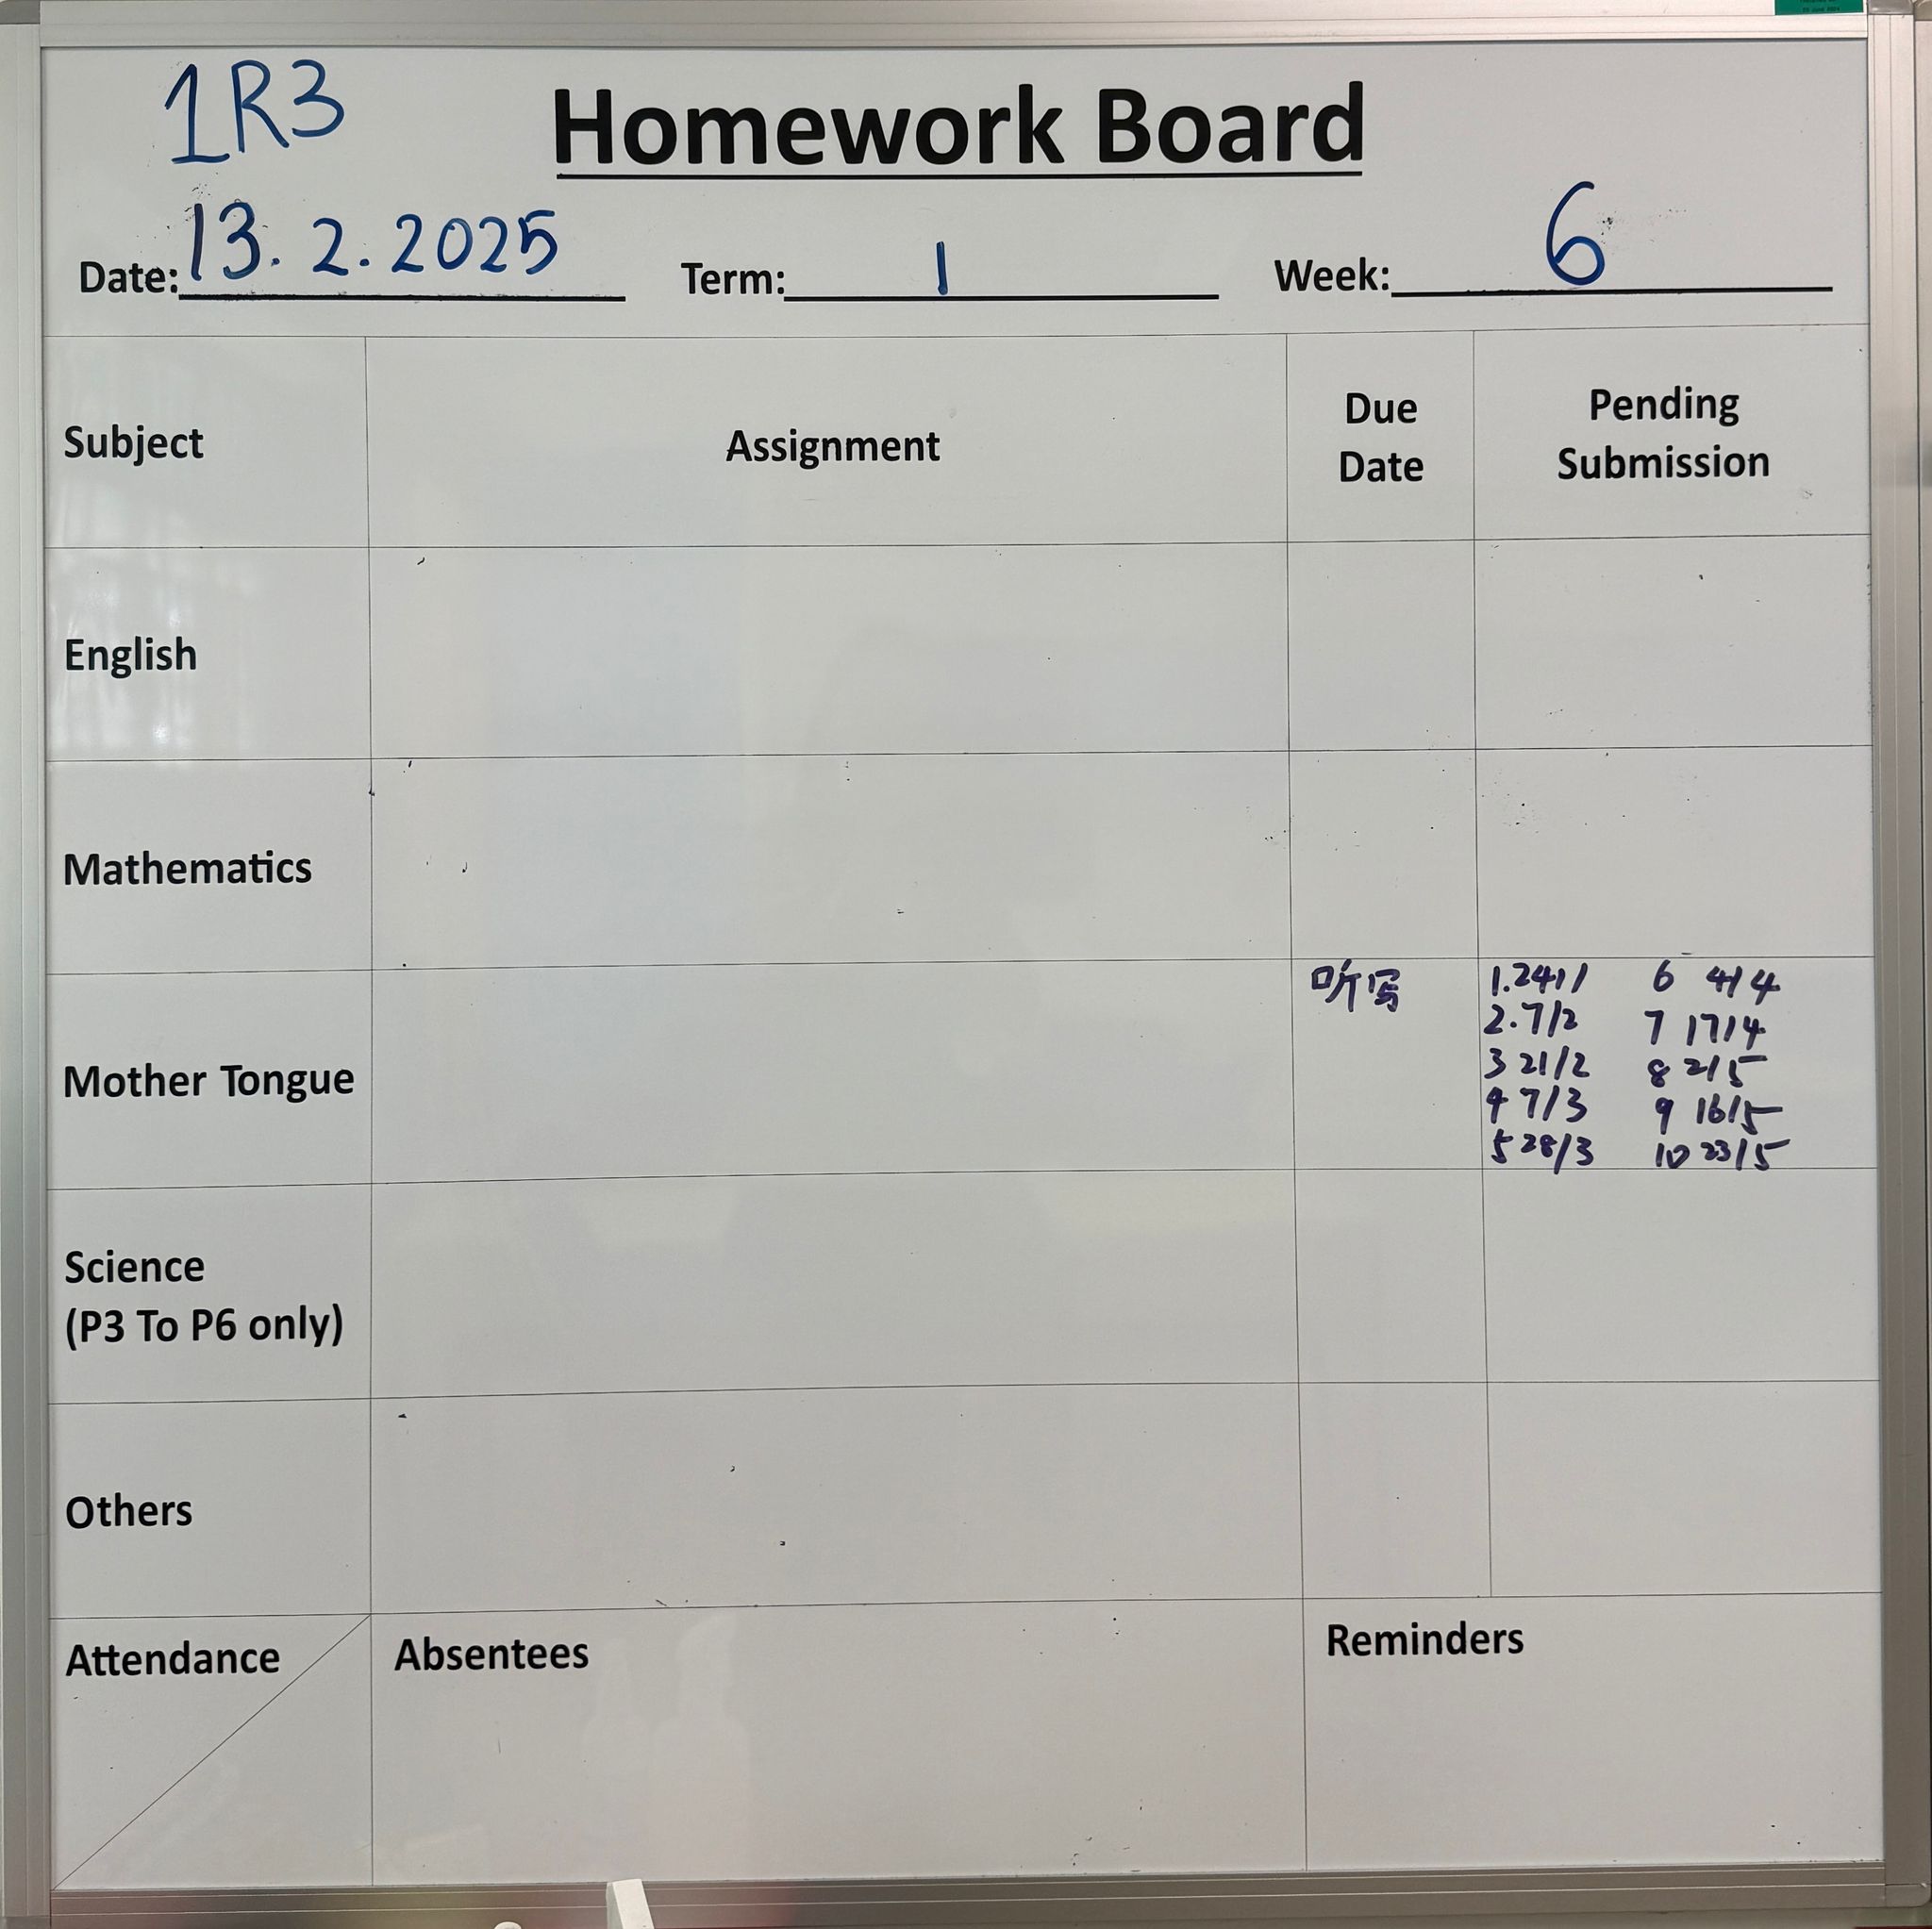 1R3
Homework Board
Date: 13.2.2025 Term: 1 Week: 6
Subject Assignment Due Date Pending Submission
English
Mathematics
Mother Tongue
听写
1.24/1 6 4/4
2.7/2 7 17/4
3 21/2 8 2/5
4 7/3 9 16/5
5 28/3 10 23/5
Science
(P3 To P6 only)
Others
Attendance Absentees Reminders